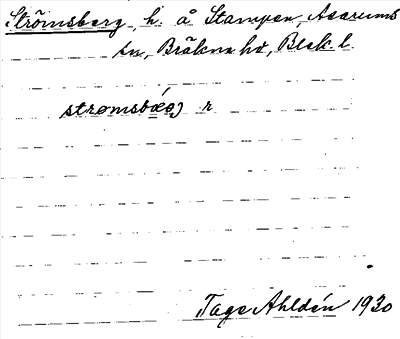 Strömsberg, h. å Stampen, Asarums
sn, Bräkne hd, Blek. l.
strømsbæ̀rj r
Tage Ahldén 1930